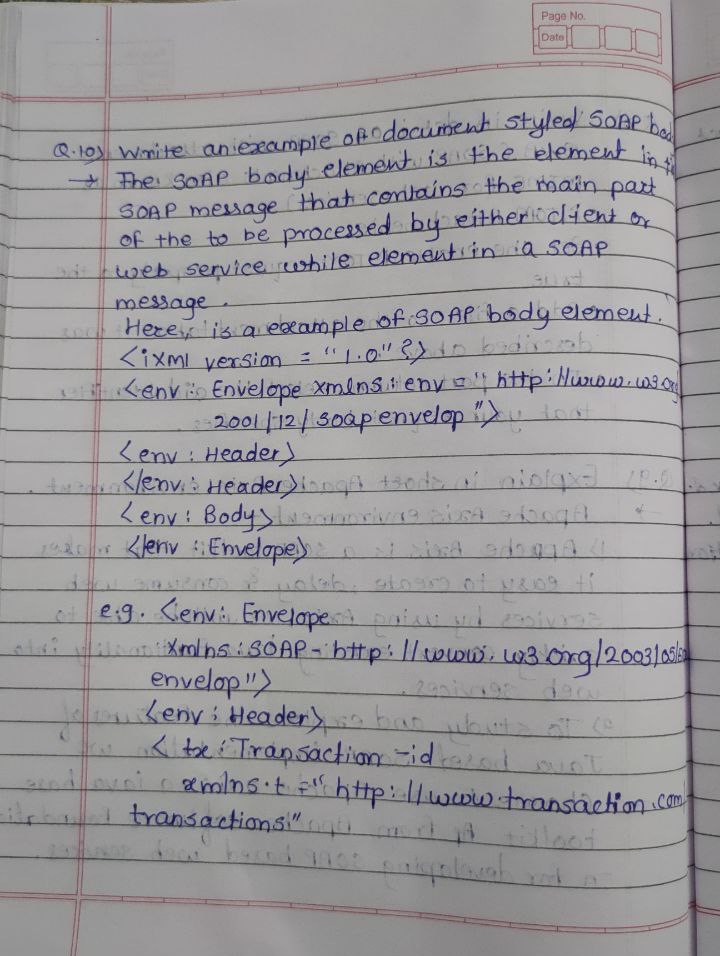 Page No.
Date
Q.10) Write an example of document styled SOAP bod
→ The SOAP body element is the element in
SOAP message that contains the main part
of the to be processed by either client or
web service while element in a SOAP
message.
Here, is a example of SOAP body element.
<ixml version = "1.0"?>
<env: Envelope xmlns:env = "http://www.w3.org
2001/12/soap envelop">
<env: Header>
</env: Header>
<env: Body>
</env: Envelope>
e.g. <env: Envelope
xmlns:SOAP- http://www.w3.org/2003/05/
envelop">
<env: Header>
<tx: Transaction -id
xmlns.t ="http://www.transaction.com/
transactions"